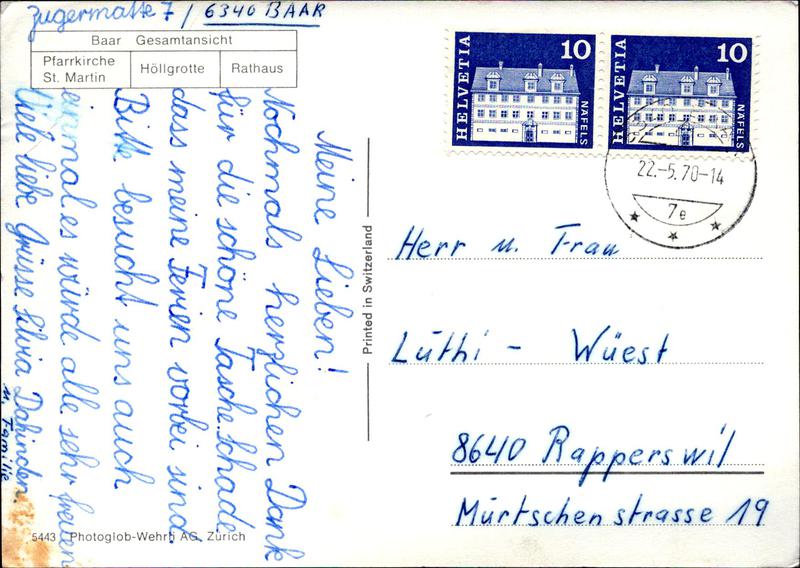 Zugermatte 7 / 6340 BAAR
Baar Gesamtansicht
Pfarrkirche St. Martin
Höllgrotte
Rathaus
Meine Lieben!
Nochmals herzlichen Dank
für die schöne Tasche. Schade
dass meine Ferien vorbei sind.
Bitte besucht uns auch
einmal es würde alle sehr freuen
Viele liebe Grüsse Silvia Dahinden
u. Familie
5443 Photoglob-Wehrli AG, Zürich
Printed in Switzerland
HELVETIA 10 NÄFELS
HELVETIA 10 NÄFELS
22.-5.70-14
7e
Herr u. Frau
Lüthi - Wüest
8640 Rapperswil
Mürtschenstrasse 19